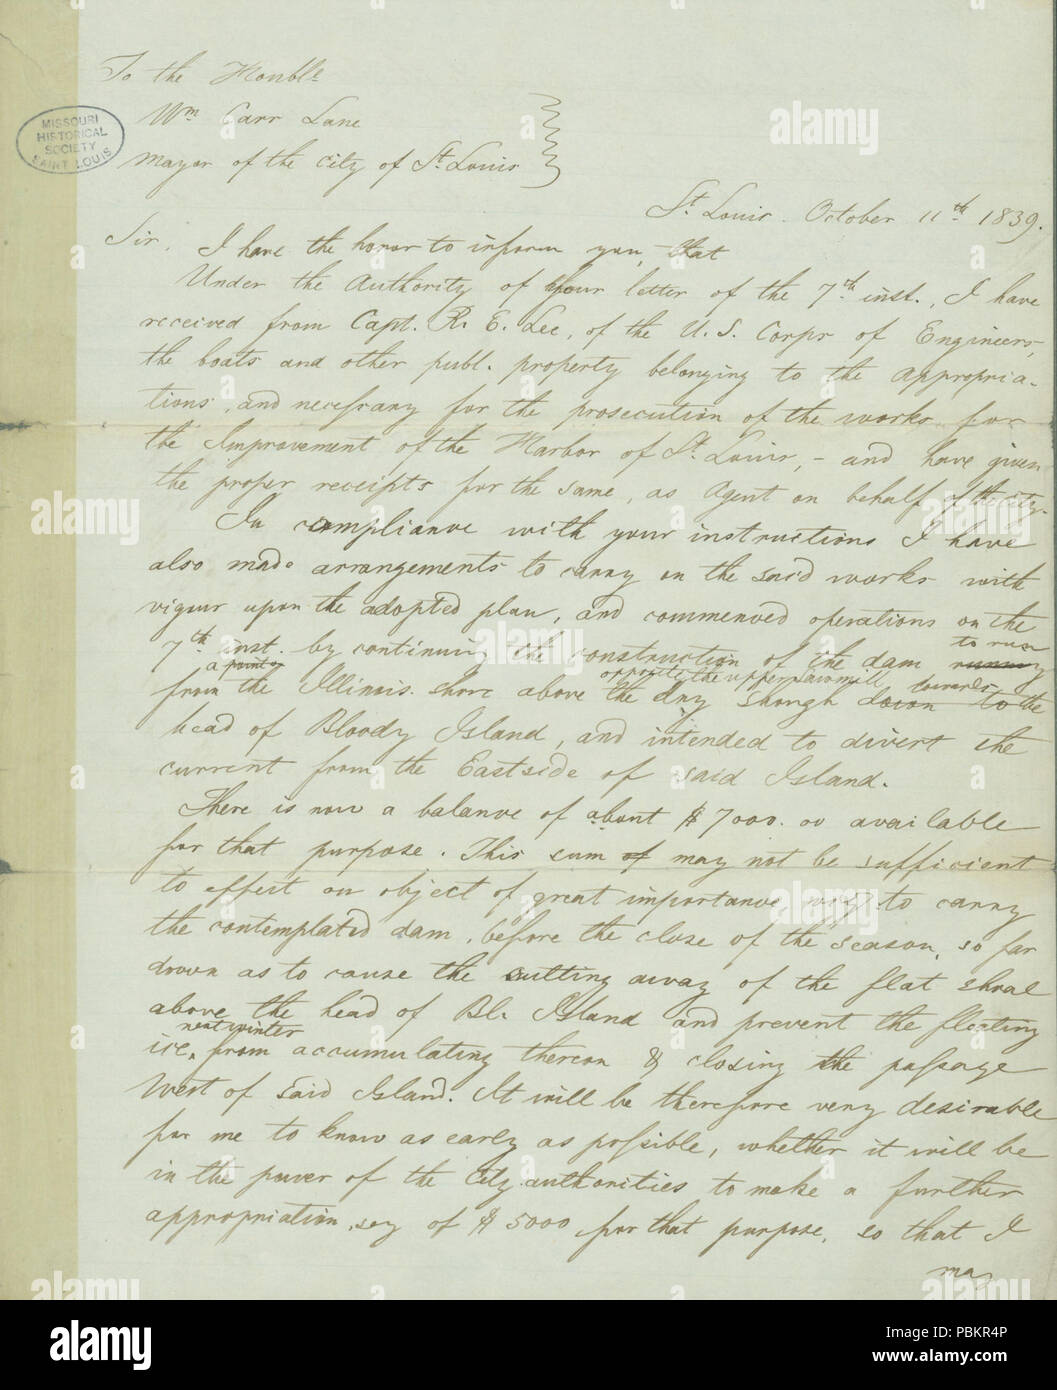 To the Honble
Wm Carr Lane
Mayor of the City of St Louis
MISSOURI
HISTORICAL
SOCIETY
SAINT LOUIS
St. Louis. October 11th 1839.
Sir. I have the honor to inform you, that
Under the Authority of your letter of the 7th inst., I have
received from Capt. R. E. Lee, of the U. S. Corps of Engineers,
the boats and other publ. property belonging to the appropria-
tions, and necessary for the prosecution of the works for
the Improvement of the Harbor of St. Louis, - and have given
the proper receipts for the same, as Agent on behalf of the City.
In compliance with your instructions I have
also made arrangements to carry on the said works with
vigour upon the adopted plan, and commenced operations on the
7th inst. by continuing the construction of the dam running
to run
a point of
opposite the upper sawmill
towards
from the Illinois shore above the dry slough down to the
head of Bloody Island, and intended to divert the
current from the Eastside of said Island.
There is now a balance of about $7000. 00 available
for that purpose. This sum of may not be sufficient
to effect an object of great importance, to carry
the contemplated dam, before the close of the season, so far
down as to cause the cutting away of the flat shoal
above the head of Bl. Island and prevent the floating
next winter
ice, from accumulating thereon & closing the passage
West of said Island. It will be therefore very desirable
for me to know as early as possible, whether it will be
in the power of the City authorities to make a further
appropriation, say of $5000 for that purpose, so that I
may
alamy
alamy
Image ID: PBKR4P
www.alamy.com